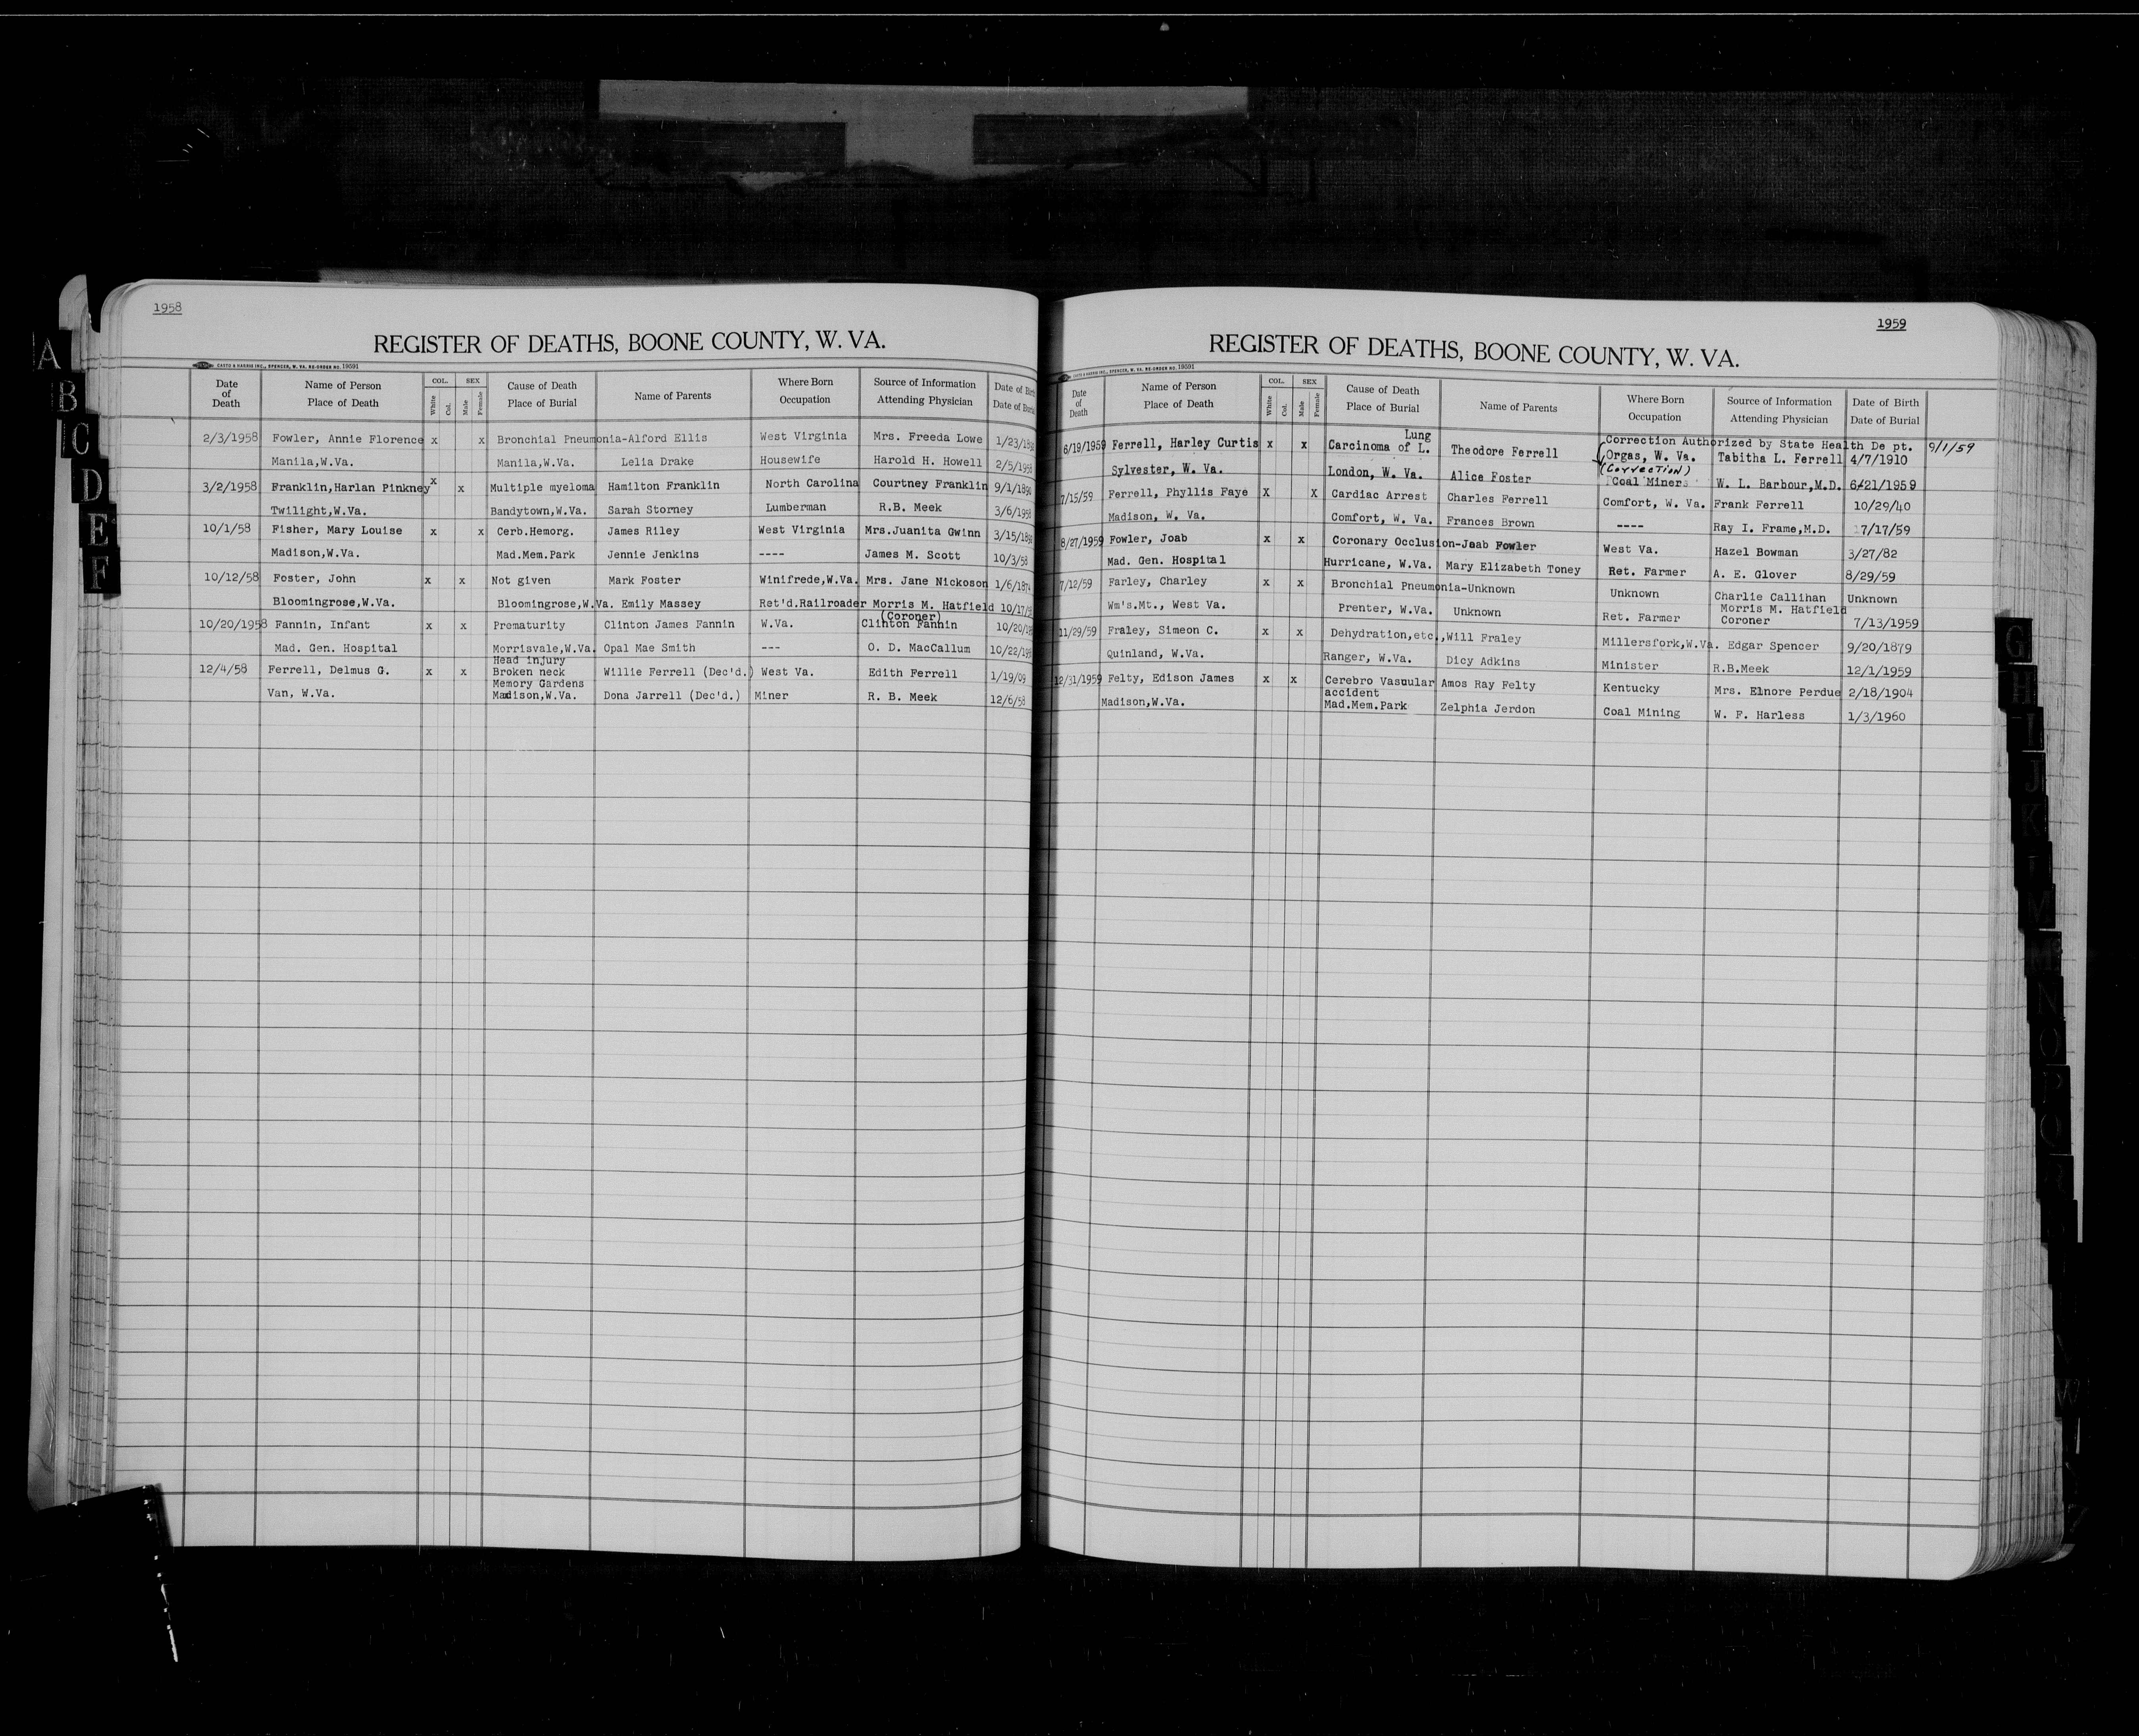 1958
REGISTER OF DEATHS, BOONE COUNTY, W. VA.
CASTO & HARRIS INC., SPENCER, W. VA. RE-ORDER NO. 19591
Date of Death | Name of Person Place of Death | COL. White Col. | SEX Male Female | Cause of Death Place of Burial | Name of Parents | Where Born Occupation | Source of Information Attending Physician | Date of Birth Date of Burial
2/3/1958 Fowler, Annie Florence x x Bronchial Pneumonia-Alford Ellis West Virginia Mrs. Freeda Lowe
Manila,W.Va. Manila,W.Va. Lelia Drake Housewife Harold H. Howell 2/5/1958
3/2/1958 Franklin,Harlan Pinkney x x Multiple myeloma Hamilton Franklin North Carolina Courtney Franklin
Twilight,W.Va. Bandytown,W.Va. Sarah Storney Lumberman R.B. Meek 3/6/1958
10/1/58 Fisher, Mary Louise x x Cerb.Hemorg. James Riley West Virginia Mrs.Juanita Gwinn
Madison,W.Va. Mad.Mem.Park Jennie Jenkins ---- James M. Scott 10/3/58
10/12/58 Foster, John x x Not given Mark Foster Winifrede,W.Va. Mrs. Jane Nickoson 1/6/1874
Bloomingrose,W.Va. Bloomingrose,W.Va. Emily Massey Ret'd.Railroader Morris M. Hatfield
(Coroner)
10/20/1958 Fannin, Infant x x Prematurity Clinton James Fannin W.Va. Clinton Fannin
Mad. Gen. Hospital Morrisvale,W.Va. Opal Mae Smith --- O. D. MacCallum
Head injury
12/4/58 Ferrell, Delmus G. x x Broken neck Willie Ferrell (Dec'd.) West Va. Edith Ferrell 1/19/09
Memory Gardens
Van, W.Va. Madison,W.Va. Dona Jarrell (Dec'd.) Miner R. B. Meek 12/6/58
1959
REGISTER OF DEATHS, BOONE COUNTY, W. VA.
CASTO & HARRIS INC., SPENCER, W. VA. RE-ORDER NO. 19591
Date of Death | Name of Person Place of Death | COL. White Col. | SEX Male Female | Cause of Death Place of Burial | Name of Parents | Where Born Occupation | Source of Information Attending Physician | Date of Birth Date of Burial
Lung Correction Authorized by State Health De pt. 9/1/59
6/19/1959 Ferrell, Harley Curtis x x Carcinoma of L. Theodore Ferrell (Orgas, W. Va. Tabitha L. Ferrell 4/7/1910
(Correction)
Sylvester, W. Va. London, W. Va. Alice Foster Coal Miner W. L. Barbour,M.D. 6/21/1959
7/15/59 Ferrell, Phyllis Faye X X Cardiac Arrest Charles Ferrell Comfort, W. Va. Frank Ferrell 10/29/40
Madison, W. Va. Comfort, W. Va. Frances Brown ---- Ray I. Frame,M.D. 7/17/59
8/27/1959 Fowler, Joab x x Coronary Occlusion-Joab Fowler West Va. Hazel Bowman 3/27/82
Mad. Gen. Hospital Hurricane, W.Va. Mary Elizabeth Toney Ret. Farmer A. E. Glover 8/29/59
7/12/59 Farley, Charley x x Bronchial Pneumonia-Unknown Unknown Charlie Callihan Unknown
Wm's.Mt., West Va. Prenter, W.Va. Unknown Ret. Farmer Morris M. Hatfield
Coroner 7/13/1959
11/29/59 Fraley, Simeon C. x x Dehydration,etc., Will Fraley Millersfork,W.Va. Edgar Spencer 9/20/1879
Quinland, W.Va. Ranger, W.Va. Dicy Adkins Minister R.B.Meek 12/1/1959
12/31/1959 Felty, Edison James x x Cerebro Vascular Amos Ray Felty Kentucky Mrs. Elnore Perdue 2/18/1904
accident
Madison,W.Va. Mad.Mem.Park Zelphia Jerdon Coal Mining W. F. Harless 1/3/1960
A
B
C
D
E
F
G
H
I
J
K
M
N
O